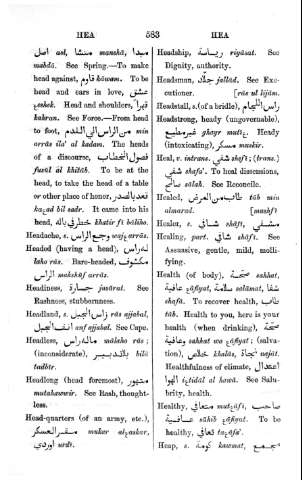 HEA 583 HEA
اصل asl, منشا manshá, مبدا
mabdá. See Spring.—To make
head against, قاوم káwam. To be
head and ears in love, عشق
eshek. Head and shoulders, قهرا
kahran. See Force.—From head
to foot, من الراس الي القدم min
arrás ila' al kadam. The heads
of a discourse, فصول الخطاب
fusúl al khitáb. To be at the
head, to take the head of a table
or other place of honor, قعد بالصدر
bil sadr. It came into his
head, خطر في باله khatir fi báliho.
Headache, s. وجع الراس arrás.
Headed (having a head), له راس
laho rás. Bare-headed, مكشوف
الراس makshúf arrás.
Headiness, جسارة jasárat. See
Rashness, stubbornness.
Headland, s. راس الجبل rás ajjabal,
انف الجبل anf ajjabal. See Cape.
Headless, ماله راس máleho rás;
(inconsiderate), بلا تدبير bilá
tadbír.
Headlong (head foremost), متهور
mutahawwir. See Rash, thought-
less.
Head-quarters (of an army, etc.),
مقر العسكر makar
اوردي urdi.
Headship, رياسة riyásat. See
Dignity, authority.
Headsman, جلاد jallád. See Exe-
cutioner. [rás ul lijám.
Headstall, s. (of a bridle), راس اللجام
Headstrong, heady (ungovernable),
غير مطيع ghayr Heady
(intoxicating), مسكر muskir.
Heal, v. intrans. شفي shafi; (trans.)
شفي shafa'. To heal dissensions,
صالح sálah. See Reconcile.
Healed, طاب من العرض táb min
almarad. [mushfí
Healer, s. شافي sháfi, مشفي
Healing, part. شافي sháfi. See
Assuasive, gentle, mild, molli-
fying.
Health (of body), صحة sahhat,
عافية سلامة salámat, شفا
shafa. To recover health, طاب
táb. Health to you, here is your
health (when drinking), صحة
وعافية sahhat wa (salva-
tion), خلاص khalás, نجاة naját.
Healthfulness of climate, اعتدال
الهوا al hawá. See Salu-
brity, health.
Healthy, متعافي صاحب
عافية sáhib To be
healthy, تعافي
Heap, s. كومة kawmat, جمع